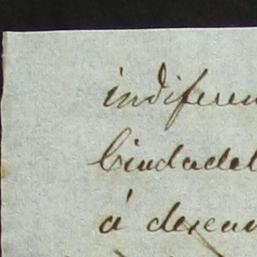 indiferen
Ciudadel
á desean